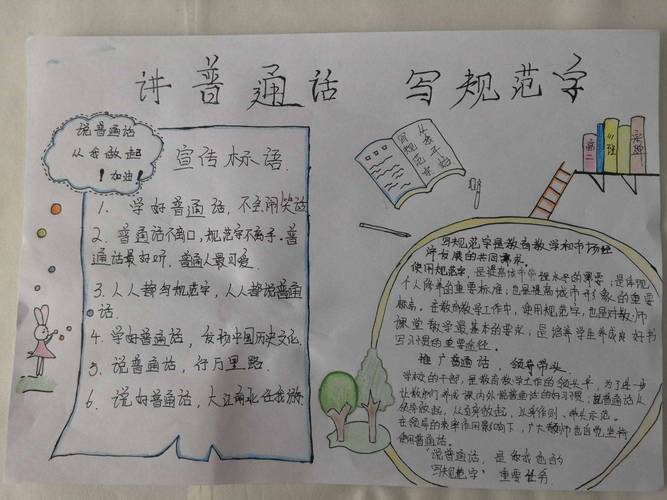 讲普通话 写规范字
说普通话
从我做起
！加油！
宣传标语
1. 学好普通话，不会闹笑话
2. 普通话不离口，规范字不离手。普
通话最好听，普通人最可爱。
3. 人人都写规范字，人人都说普通
话
4. 学好普通话，发扬中国历史文化
5. 说普通话，行万里路
6. 说好普通话，大江南北任我游
写规范字
从我手始
写规范字是教育教学和市场经
济发展的共同需求。
使用规范字，是提高城市管理水平的需要；是评
个人修养的重要标准；也是提高城市形象的重要
在教育教学工作中，使用规范字，也是对教师
课堂教学最基本的要求；是培养学生养成良好书
写习惯的重要途径。
推广普通话，领导带头
学校的干部，是教育教学工作的领头羊，为了进一步
让教师们养成课内外说普通话的好习惯，普通话从
领导做起，从自身做起，以身作则，带头示范。
在领导的表率作用影响下，广大教师也自觉坚持
使用普通话。
"说普通话，是你我他的
写规范字" 重要任务